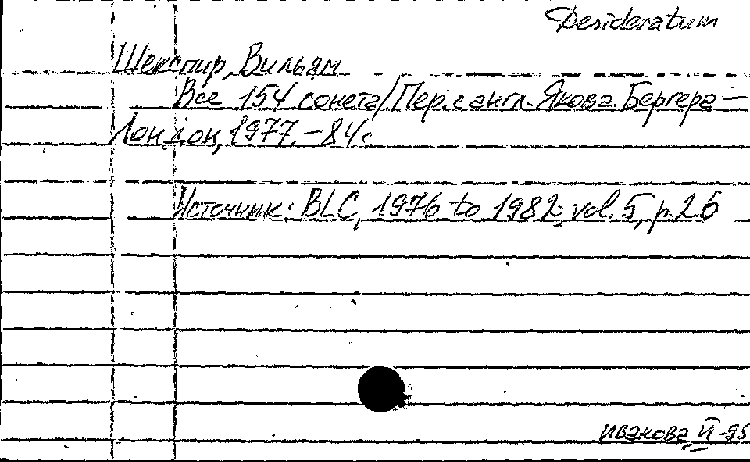 Desideratum
Шекспир, Вильям
Все 154 сонета / Пер. с англ. Якова Бергера —
Лондон, 1977. – 84 с.
Источник: BLC, 1976 to 1982: vol. 5, p. 26
Иванова II-95